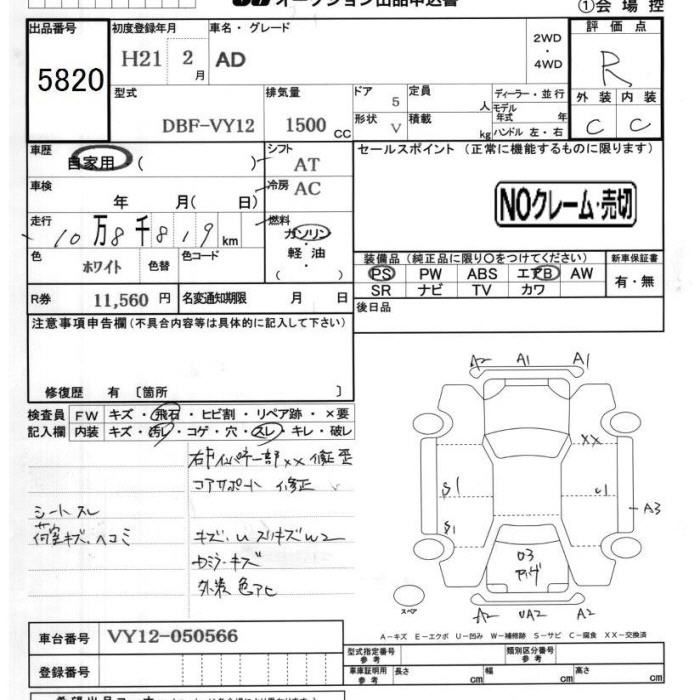 オークション出品申込書
①会場控
出品番号 初度登録年月 車名・グレード 2WD・4WD 評価点
5820 H21 2月 AD R
型式 排気量 ドア 5 定員 人 ディーラー・並行 外装 内装
DBF-VY12 1500 CC 形状 V 積載 kg モデル年式 年 ハンドル 左・右 C C
車歴 自家用 ( ) シフト AT セールスポイント (正常に機能するものに限ります)
車検 年 月( 日) 冷房 AC
NOクレーム・売切
走行 10万8千819km 燃料 ガソリン・軽油 ( )
色 ホワイト 色替 色コード
装備品 (純正品に限り○をつけてください) 新車保証書
PS PW ABS エアB AW 有・無
SR ナビ TV カワ
R券 11,560円 名変通知期限 月 日
後日品
注意事項申告欄(不具合内容等は具体的に記入して下さい)
修復歴 有 〔箇所 〕
検査員 FW キズ・飛石・ヒビ割・リペア跡・×要
記入欄 内装 キズ・汚レ・コゲ・穴・スレ・キレ・破レ
コアサポート 修正
シートスレ
荷室キズ、ヘコミ
外装 色アセ
A2 A1 A1
XX
S1 U1 A3
S1
03
スペア
A2 UA2 A2
A-キズ E-エクボ U-凹み W-補修跡 S-サビ C-腐食 XX-交換済
車台番号 VY12-050566
型式指定番号 参考 類別区分番号 参考
登録番号
車庫証明用 参考 長さ cm 幅 cm 高さ cm